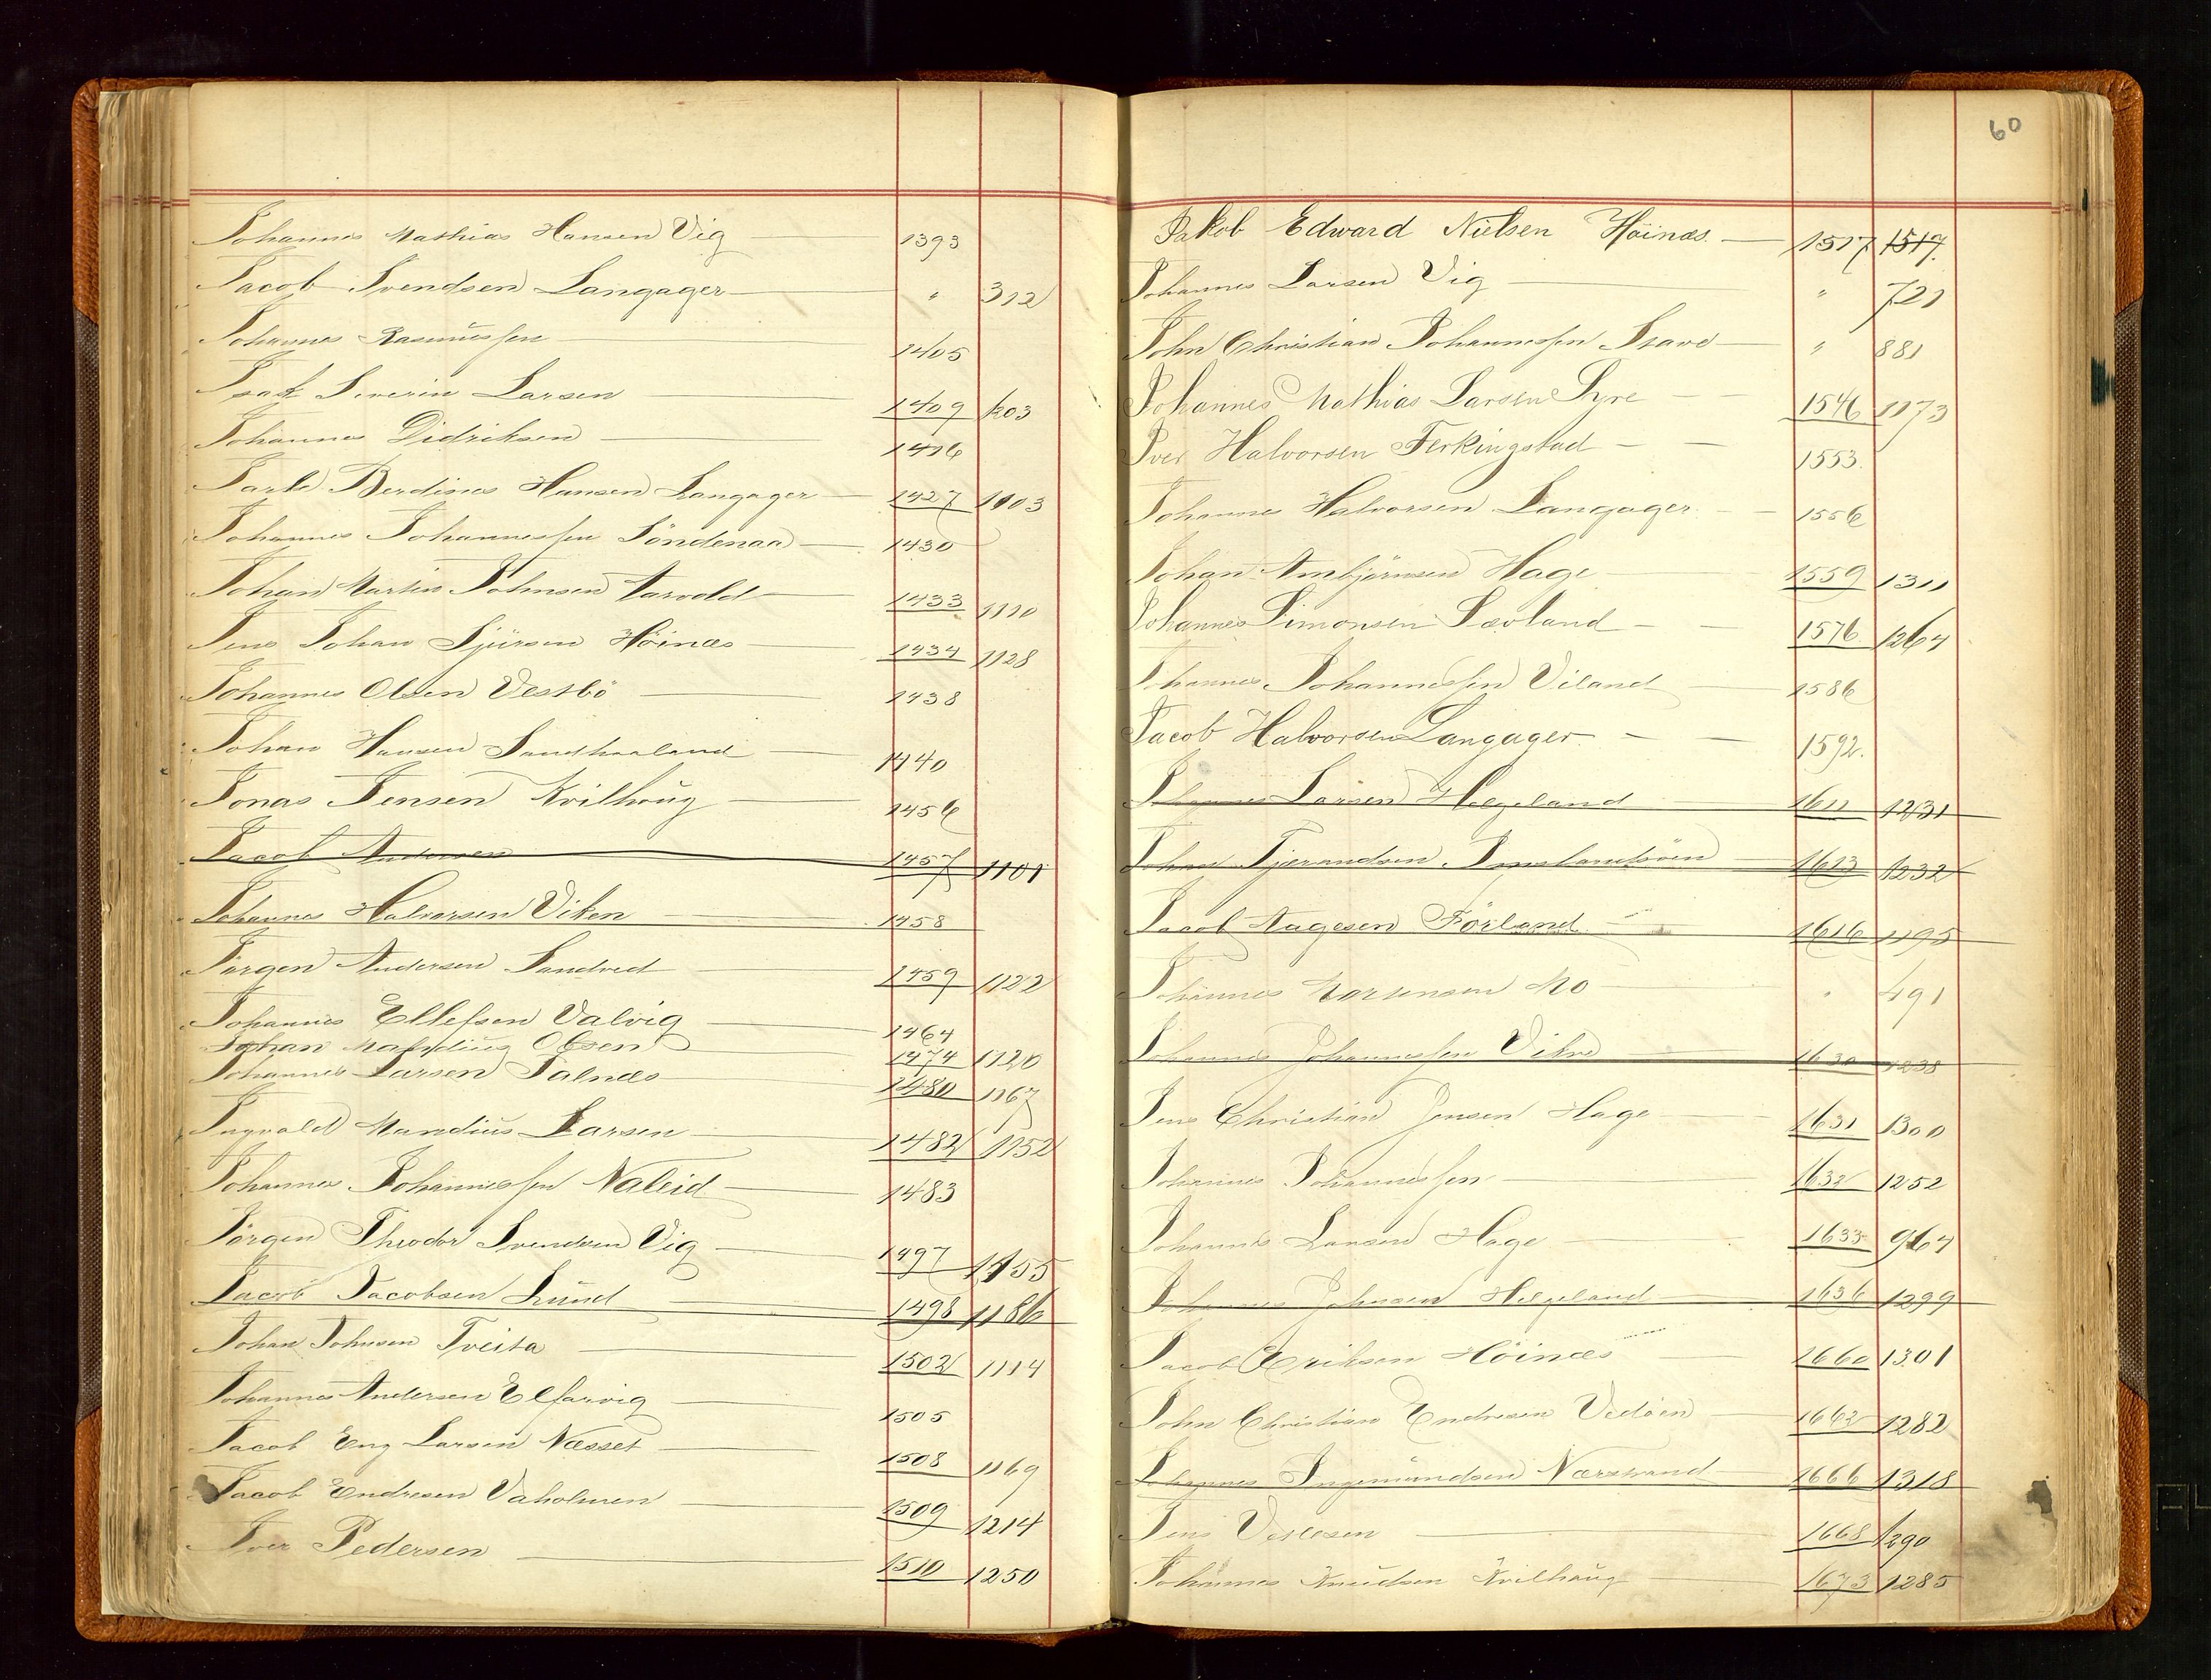 Johannes Mathias Hansen Vig — 1393
Jacob Svendsen Langager — " 312
Johannes Rasmussen — 1405
Isak Severin Larsen — 1409 1203
Johannes Didriksen — 1416
Jarle Berdines Hansen Langager — 1427 1103
Johannes Johannessen Söndenaa — 1430
Johan Martin Johnsen Aarvold — 1433 1110
Jens Johan Sjürsen Höinæs — 1434 1128
Johannes Olsen Vestbö — 1438
Johan Hansen Sandhaaland — 1440
Jonas Jensen Kvilhaug — 1456
Jacob Andersen — 1457 1101
Johannes Halvorsen Viken — 1458
Jörgen Andersen Sandved — 1459 1122
Johannes Ellefsen Valvig — 1464
Johan Mandius Olsen — 1474 1120
Johannes Larsen Salnæs — 1480 1167
Ingvald Mandius Larsen — 1482 1152
Johannes Johannessen Naleid — 1483
Jörgen Theodor Svendsen Vig — 1497 1155
Jacob Jacobsen Lund — 1498 1186
Johan Johnsen Tveita — 1502 1114
Johannes Andersen Elfarvig — 1505
Jacob Eng Larsen Næsset — 1508 1169
Jacob Endresen Vaholmen — 1509 1214
Iver Pedersen — 1510 1250
60
Jakob Edward Nielsen Höinæs. — 1517 1517.
Johannes Larsen Vig — " 721
John Christian Johannessen Stave — " 881
Johannes Mathias Larsen Syre — 1546 1173
Iver Halvorsen Ferkingstad — 1553.
Johannes Halvorsen Langager — 1556
Johan Ambjörnsen Hage — 1559 1311
Johannes Simonsen Sævland — 1576. 1264
Johannes Johannessen Viland — 1586
Jacob Halvorsen Langager. — 1592.
Johannes Larsen Helgeland — 1611 1231
Johan Tjerandsen Imslandsöen — 1613 1232
Jacob Aagesen Förland. — 1616 1195
Johannes Mortensen Mo — " 491
Johannes Johannessen Vikre — 1630 1238
Jens Christian Jensen Hage — 1631 1300
Johannes Johannessen — 1632 1252
Johannes Larsen Hage — 1633 964
Johannes Johnsen Helgeland — 1636 1299
Jacob Eriksen Höinæs — 1660 1301
John Christian Endresen Vedöen — 1662 1282
Johannes Ingemundsen Nærstrand — 1666 1318
Jens Vislesen — 1668 1290
Johannes Knudsen Kvilhaug — 1673 1285